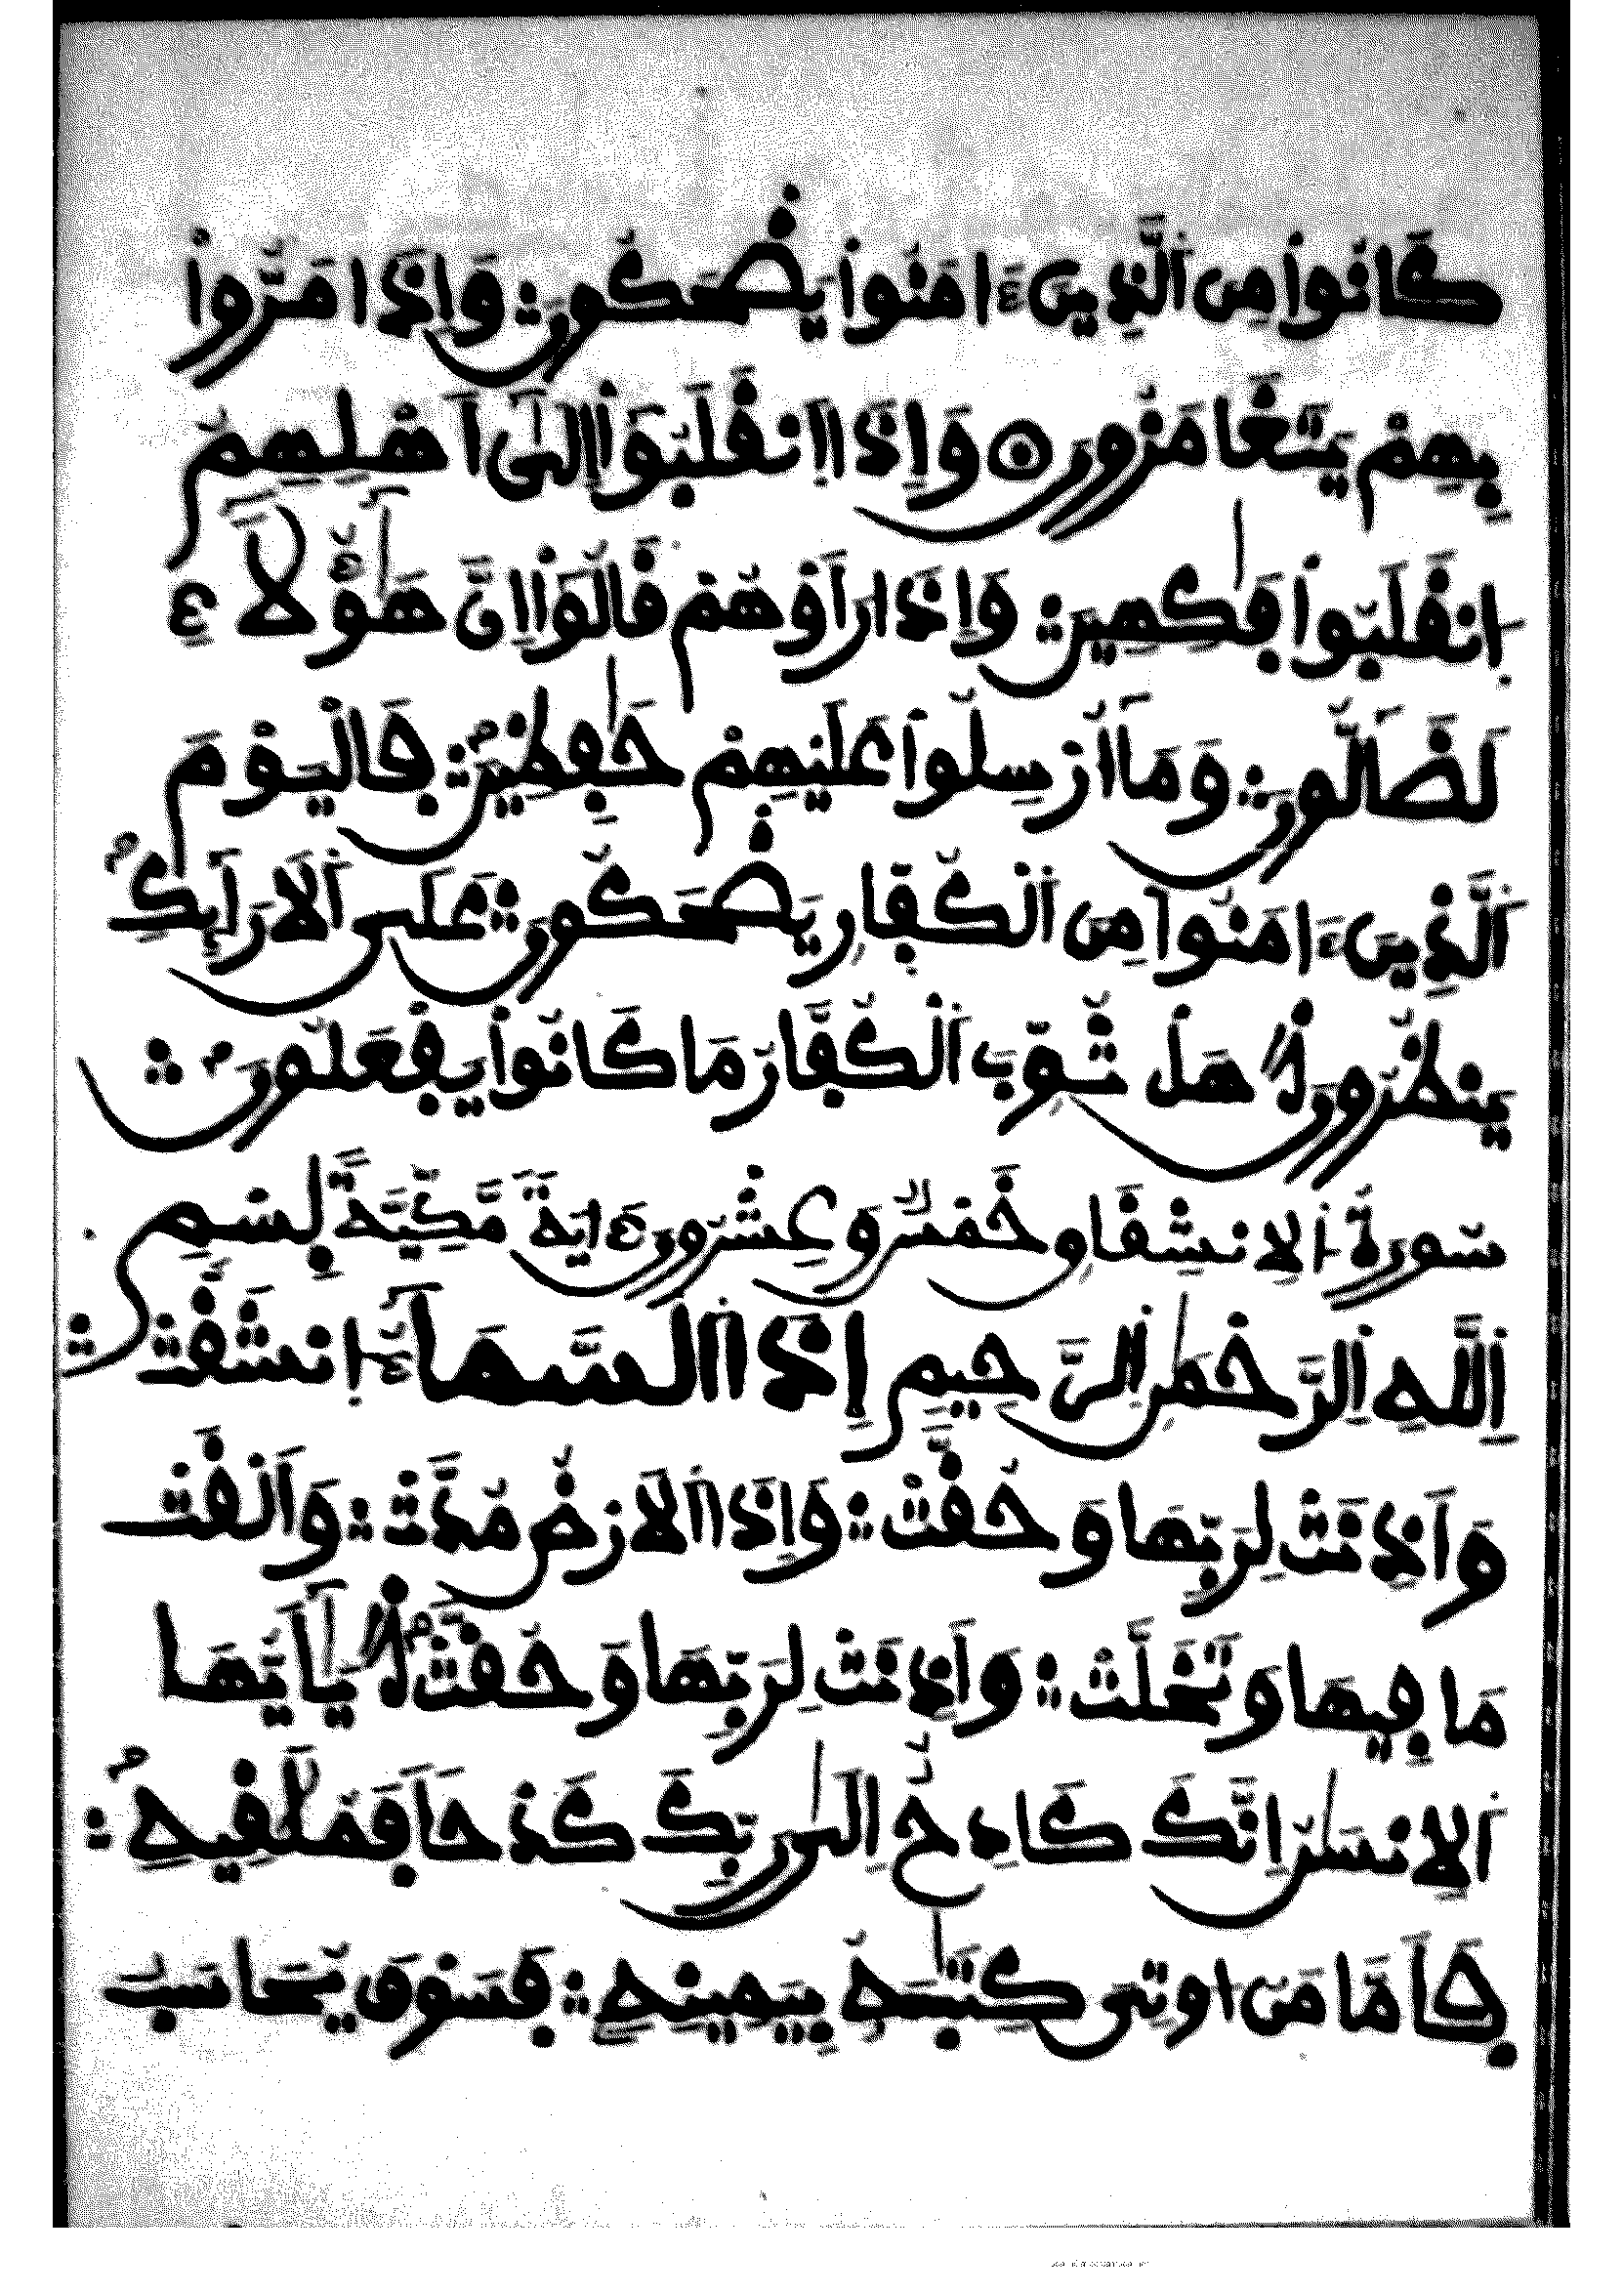 كَانُوا۟ مِنَ ٱلَّذِينَ ءَامَنُوا۟ يَضْحَكُونَ وَإِذَا مَرُّوا۟
بِهِمْ يَتَغَامَزُونَ وَإِذَا ٱنقَلَبُوٓا۟ إِلَىٰٓ أَهْلِهِمُ
ٱنقَلَبُوا۟ فَٰكِهِينَ وَإِذَا رَأَوْهُمْ قَالُوٓا۟ إِنَّ هَٰٓؤُلَآءِ
لَضَآلُّونَ وَمَآ أُرْسِلُوا۟ عَلَيْهِمْ حَٰفِظِينَ فَالْيَوْمَ
ٱلَّذِينَ ءَامَنُوا۟ مِنَ ٱلْكُفَّارِ يَضْحَكُونَ عَلَى ٱلْأَرَآئِكِ
يَنظُرُونَ هَلْ ثُوِّبَ ٱلْكُفَّارُ مَا كَانُوا۟ يَفْعَلُونَ
سُورَةُ ٱلِانشِقَاقِ خَمْسٌ وَعِشْرُونَ ءَايَةً مَّكِّيَّةٌ بِسْمِ
ٱللَّهِ ٱلرَّحْمَٰنِ ٱلرَّحِيمِ إِذَا ٱلسَّمَآءُ ٱنشَقَّتْ
وَأَذِنَتْ لِرَبِّهَا وَحُقَّتْ وَإِذَا ٱلْأَرْضُ مُدَّتْ وَأَلْقَتْ
مَا فِيهَا وَتَخَلَّتْ وَأَذِنَتْ لِرَبِّهَا وَحُقَّتْ يَٰٓأَيُّهَا
ٱلْإِنسَٰنُ إِنَّكَ كَادِحٌ إِلَىٰ رَبِّكَ كَدْحًا فَمُلَٰقِيهِ
فَأَمَّا مَنْ أُوتِيَ كِتَٰبَهُۥ بِيَمِينِهِۦ فَسَوْفَ يُحَاسَبُ